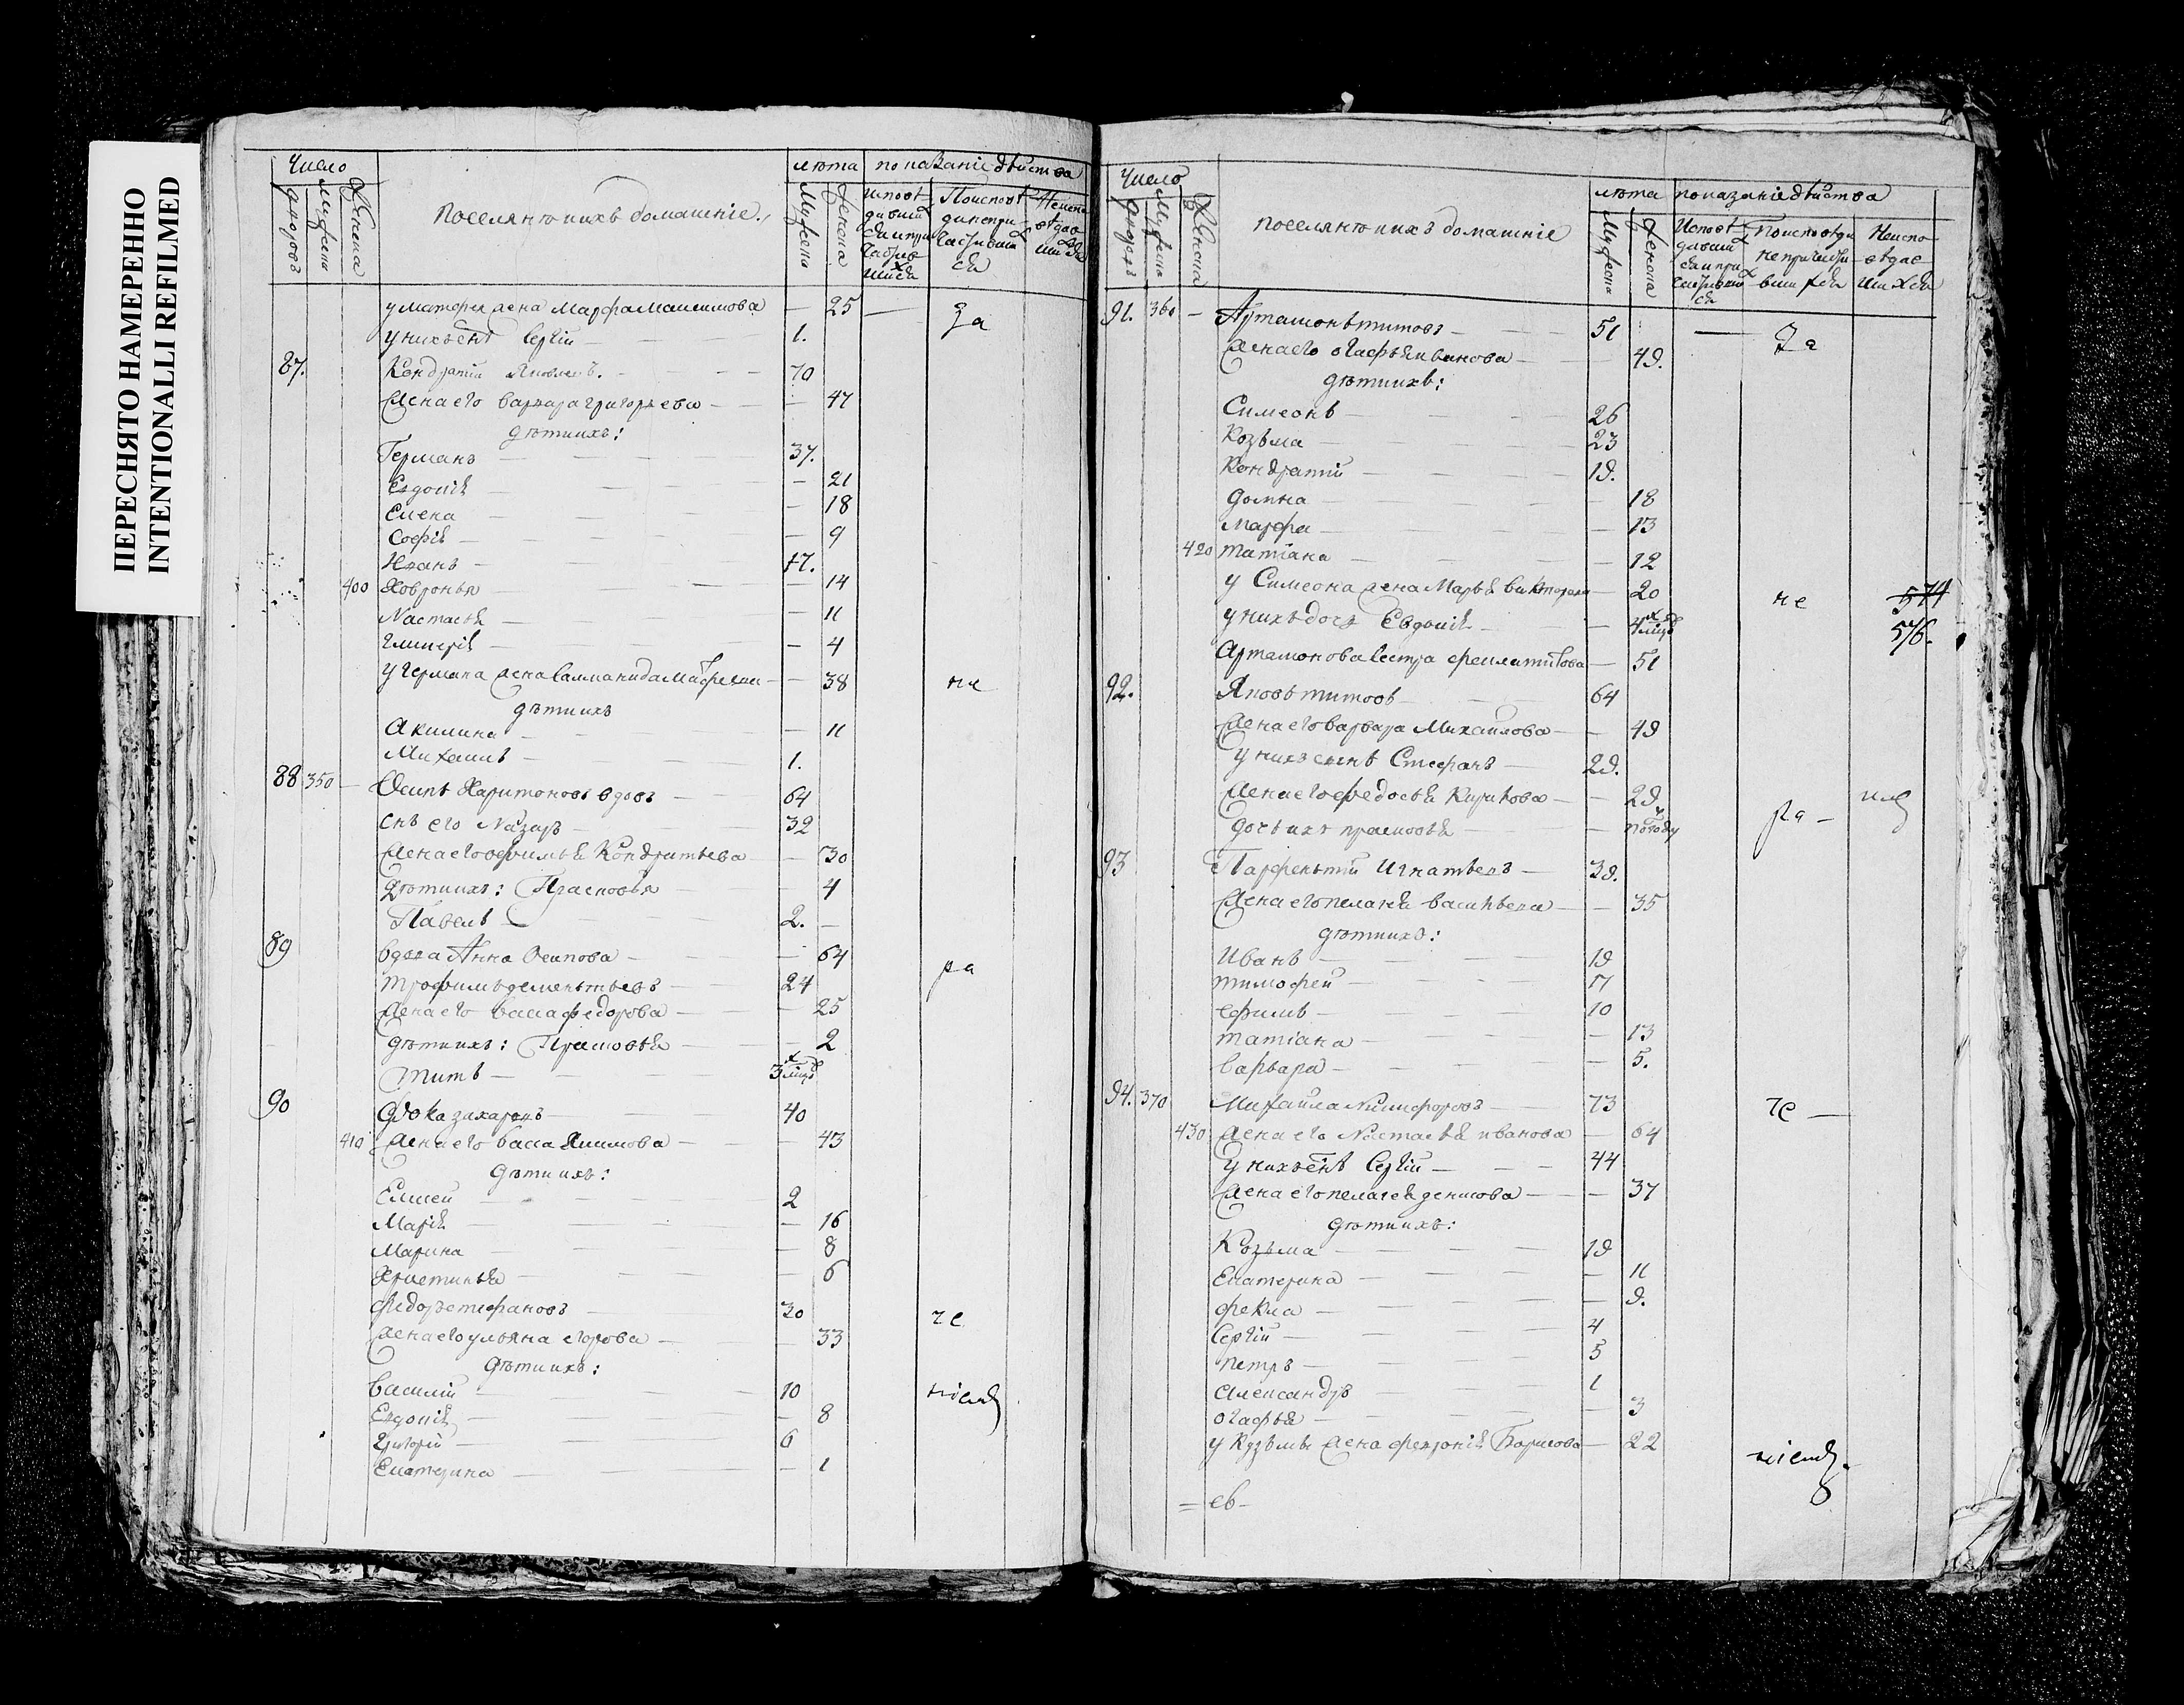 ПЕРЕСНЯТО НАМЕРЕННО
INTENTIONALLI REFILMED
Число
дворовъ
Мужеска
Женска
поселянъ и ихъ домашніе.
лѣта
Мужеска
Женска
показаніе дѣйства
у матфея жена Марфа Максимова — 25 — за
у нихъ снъ Сергій — 1.
87. Кондратій Яковлевъ. — 70
Жена его варвара григорьева — 47
дѣти ихъ:
Германъ — 37.
Евдокія — 21
Елена — 18
Софія — 9
Иванъ — 17.
400 Ховронья — 14
Настасья — 11
Гликерія — 4
у Германа жена — 38 не
дѣти ихъ
Акилина — 11
Михаилъ — 1.
88 350 — Осипъ Харитоновъ вдовъ — 64
снъ его Назаръ — 32
Жена его офимья Кондратьева — 30
дѣти ихъ: Прасковья — 4
Павелъ — 2. —
89 вдова Анна Осипова — 64
трофимъ дементьевъ — 24 ра
Жена его васса федорова — 25
дѣти ихъ: Прасковья — 2
Титъ — 3 мцъ
90 Фока захаровъ — 40
410 Жена его васса Якимова — 43
дѣти ихъ:
Елисей — 2
Марія — 16
Марина — 8
Христинья — 6
федоръ стефановъ — 30 че
Жена его ульяна егорова — 33
дѣти ихъ:
василій — 10
Евдокія — 8
Григорій — 6
Екатерина — 1
Число
дворовъ
Мужеска
Женска
поселянъ и ихъ домашніе
лѣта
Мужеска
Женска
показаніе дѣйства
91. 360 — Артамонъ титовъ — 51 — за
Жена его огафья иванова — 49.
дѣти ихъ:
Симеонъ — 26
Козьма — 23
Кондратій — 19.
домна — 18
марфа — 13
420 татіана — 12
у Симеона жена Марья викторова — 20 не 574
у нихъ дочь Евдокія — 4 мцъ 576.
Артамонова сестра фекла титова — 51
92. Яковъ титовъ — 64
Жена его варвара Михаилова — 49
у нихъ сынъ Стефанъ — 29.
Жена его федосья Карпова — 29.
дочь ихъ прасковья — полгоду ра —
93 Парфентій Игнатьевъ — 39.
Жена его пелагея васильева — 35
дѣти ихъ:
Иванъ — 19
тимофей — 17
ефимъ — 10
татіана — 13
варвара — 5.
94. 370 Михаила Никифоровъ — 73 че —
430 Жена его Настасья иванова — 64
у нихъ снъ Сергій — 44
Жена его пелагея денисова — 37
дѣти ихъ:
Козьма — 19
Екатерина — 11
фекла — 9.
Сергій — 4
петръ — 5
александръ — 1
огафья — 3
у Кузьмы жена февронія Борисова — 22
= ев —